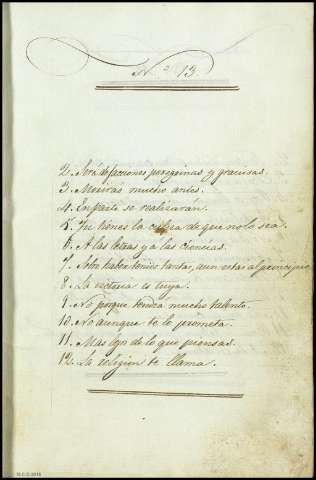 N.º 13.
2. Será de facciones peregrinas y graciosas.
3. Moriras mucho antes.
4. En parte se realizarán.
5. Tu tienes la culpa de que no lo sea.
6. A las letras y a las ciencias.
7. haber tenido tantas, aun estas al principio.
8. La victoria es tuya.
9. No porque tendra mucho talento.
10. No aunque te lo prometa.
11. Mas lejos de lo que piensas.
12. La religion te llama.